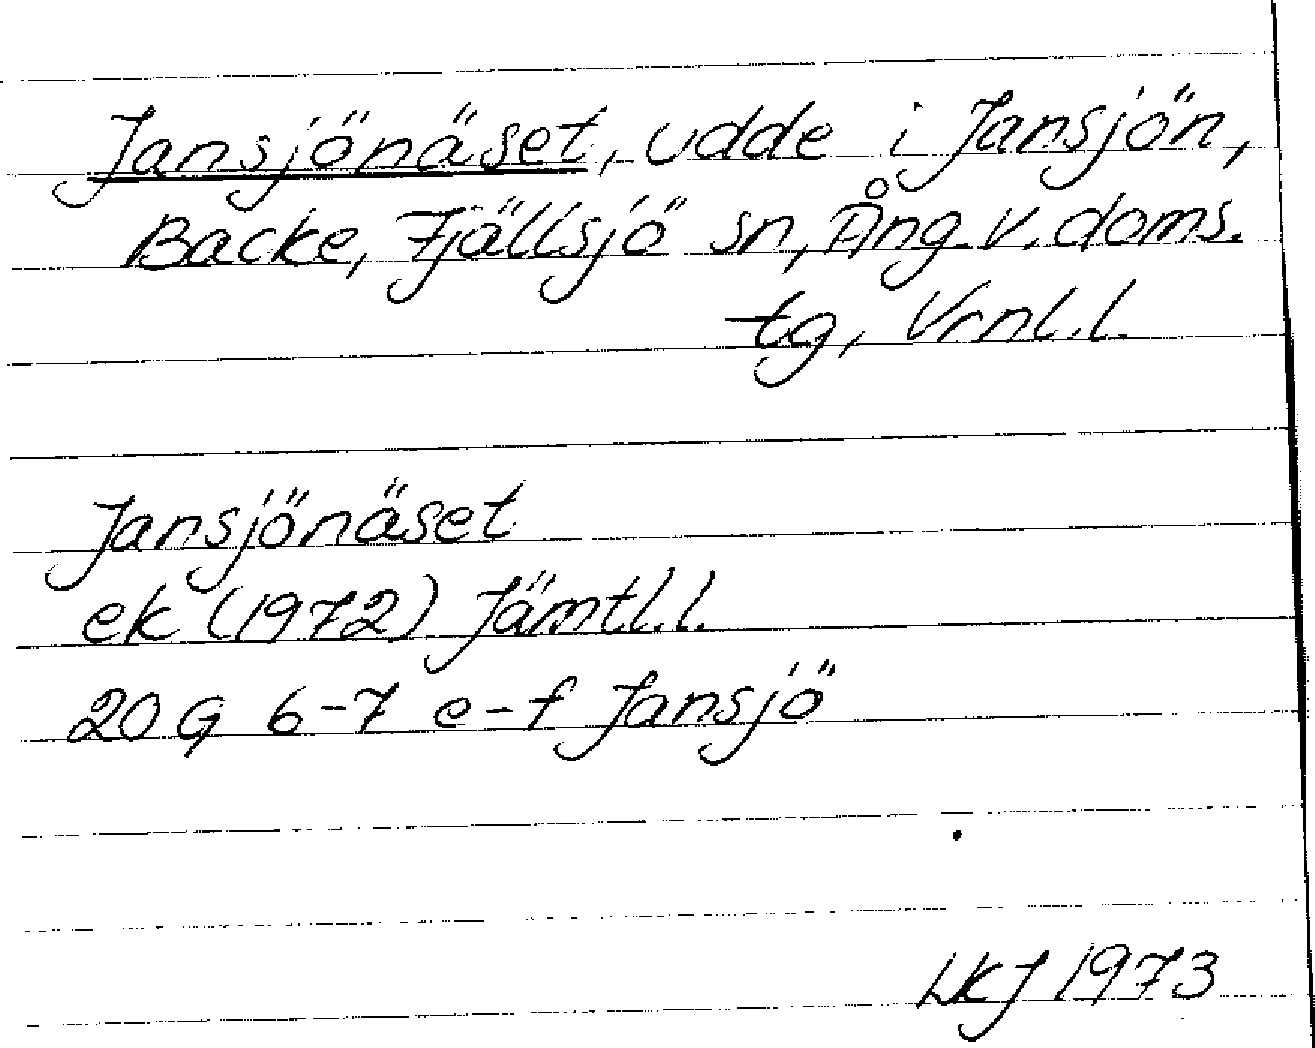 Jansjönäset, udde i Jansjön,
Backe, Fjällsjö sn, Ång. v. doms.
tg, Vrnl.l.
Jansjönäset
ek (1972) Jämtl.l.
20 G 6-7 e-f Jansjö
LKJ 1973